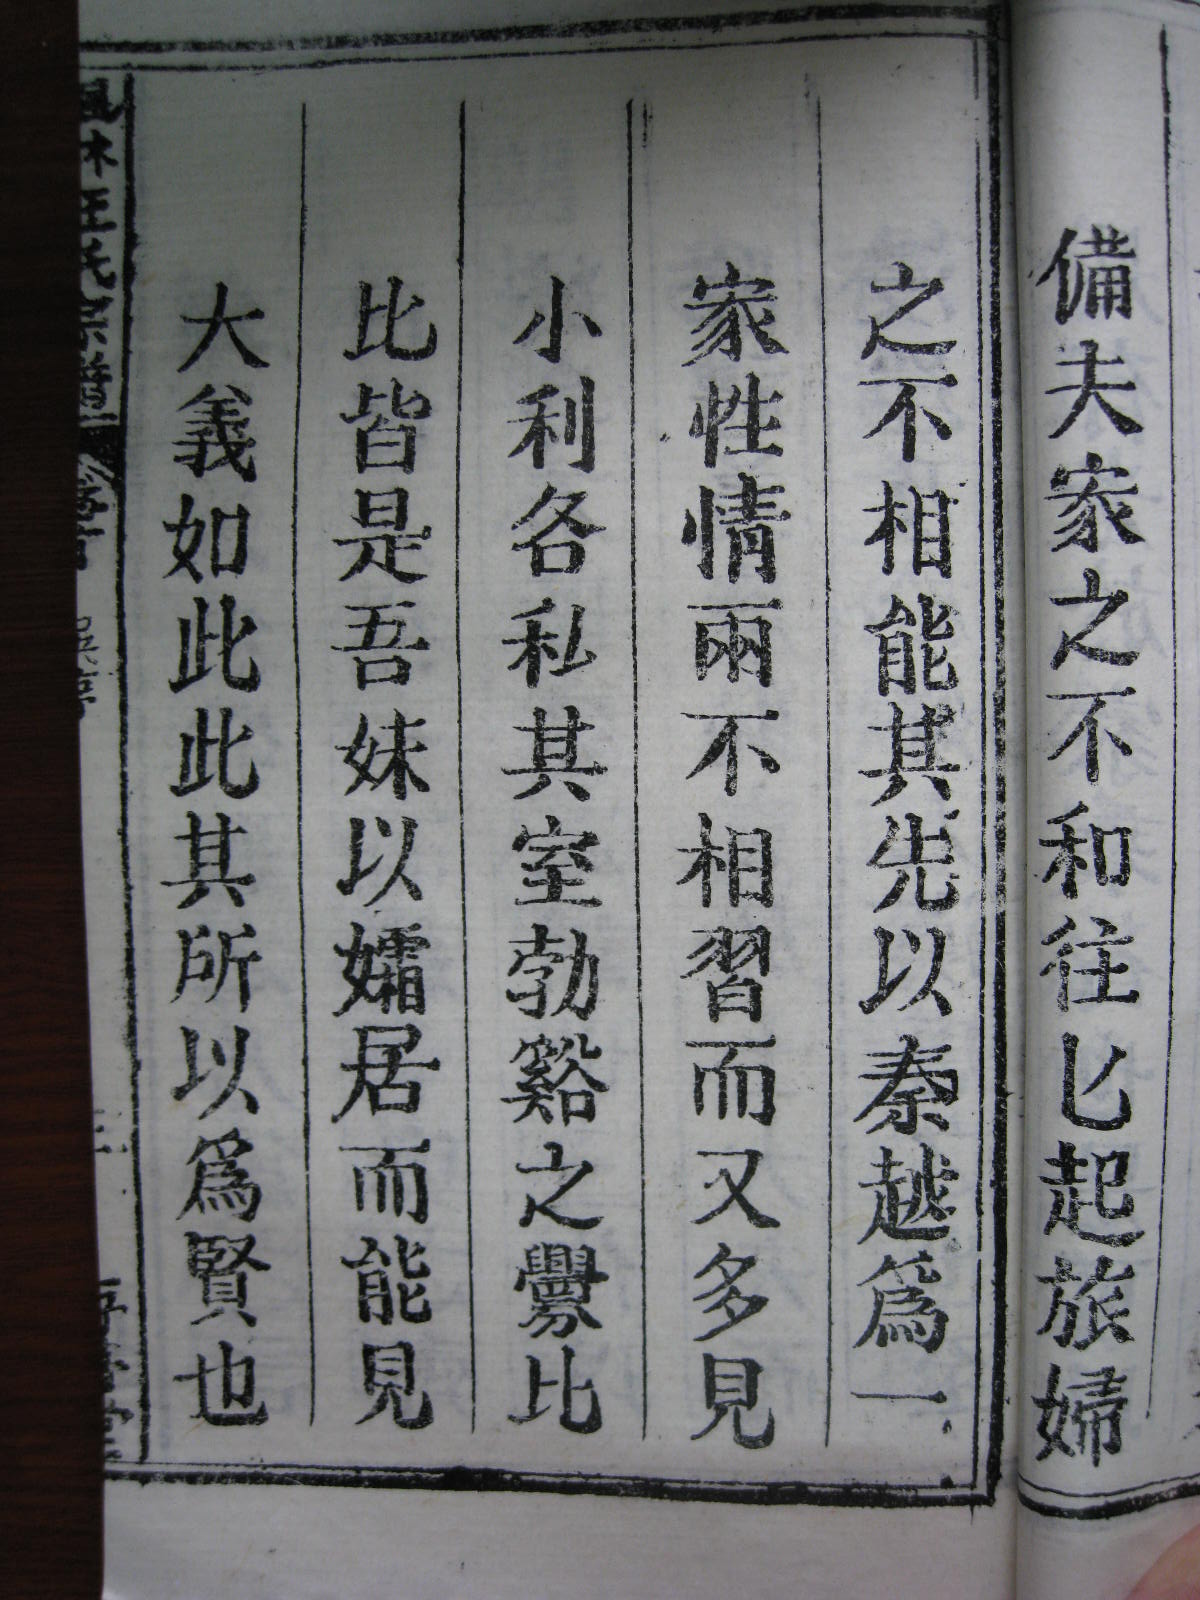 備夫家之不和往匕起旅婦
之不相能其先以秦越爲一
家性情兩不相習而又多見
小利各私其室勃谿之釁比
比皆是吾妹以孀居而能見
大義如此此其所以爲賢也
林汪氏宗譜